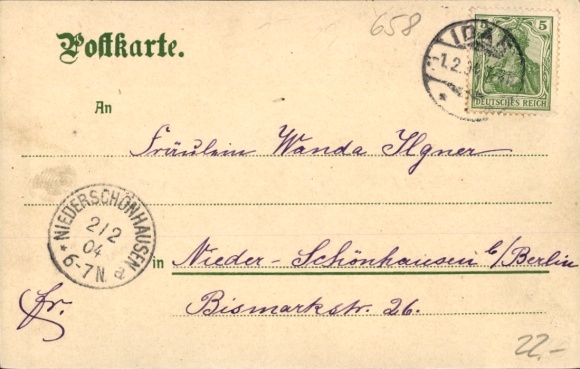 658
Postkarte.
5
DEUTSCHES REICH
1.2.
An
Fräulein Wanda Ilgner
NIEDERSCHÖNHAUSEN
2/2
04
6-7N. a
in Nieder-Schönhausen b/Berlin
fr.
Bismarkstr. 26.
22,-